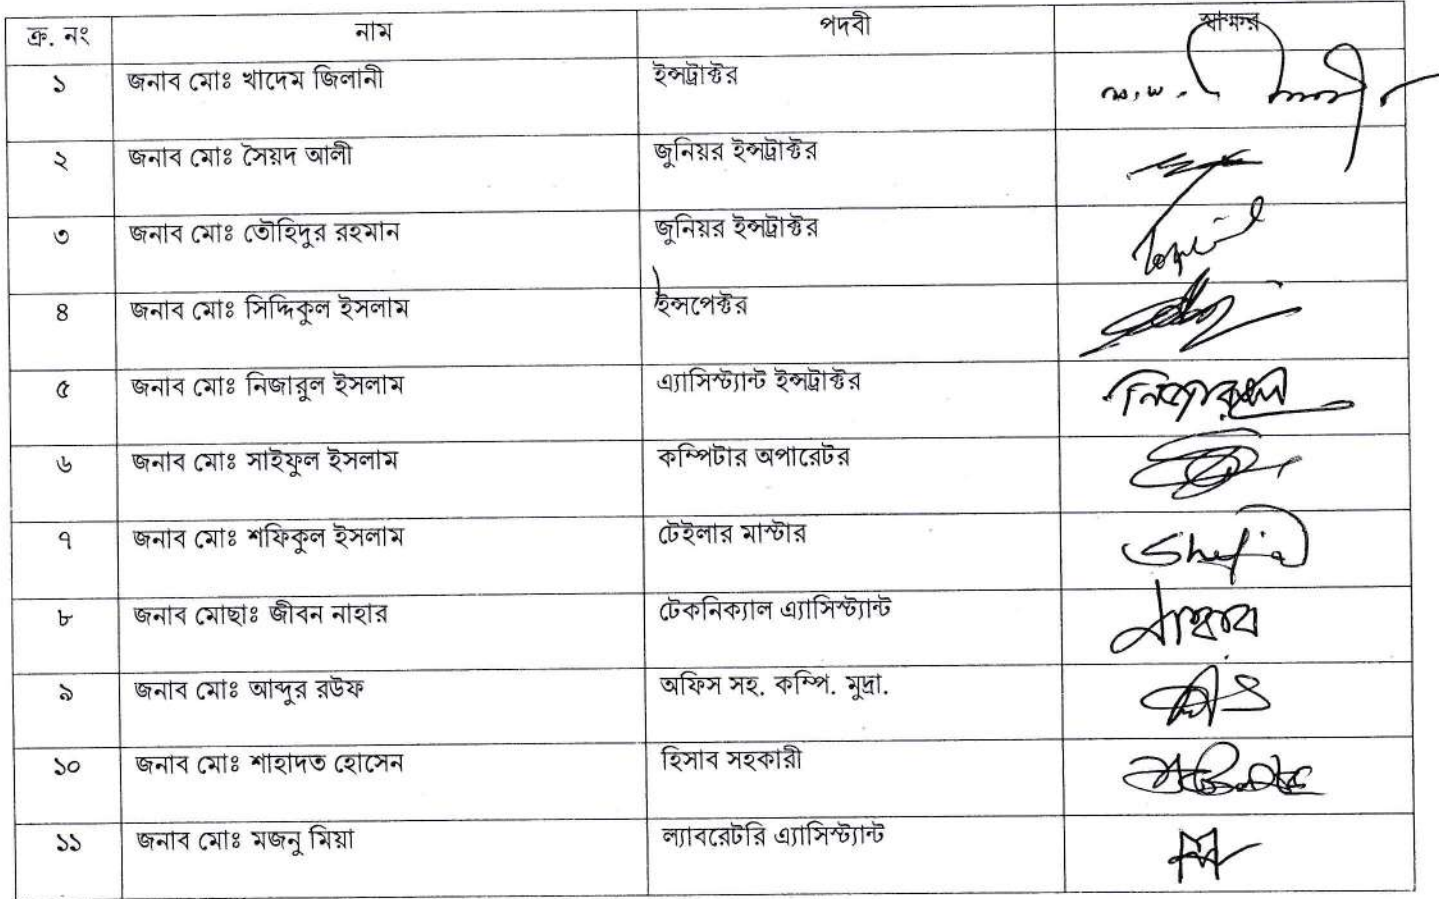 ক্র. নং নাম পদবী স্বাক্ষর
১ জনাব মোঃ খাদেম জিলানী ইন্সট্রাক্টর
২ জনাব মোঃ সৈয়দ আলী জুনিয়র ইন্সট্রাক্টর
৩ জনাব মোঃ তৌহিদুর রহমান জুনিয়র ইন্সট্রাক্টর
৪ জনাব মোঃ সিদ্দিকুল ইসলাম ইন্সপেক্টর
৫ জনাব মোঃ নিজারুল ইসলাম এ্যাসিস্ট্যান্ট ইন্সট্রাক্টর নিজারুল
৬ জনাব মোঃ সাইফুল ইসলাম কম্পিটার অপারেটর
৭ জনাব মোঃ শফিকুল ইসলাম টেইলার মাস্টার
৮ জনাব মোছাঃ জীবন নাহার টেকনিক্যাল এ্যাসিস্ট্যান্ট
৯ জনাব মোঃ আব্দুর রউফ অফিস সহ. কম্পি. মুদ্রা.
১০ জনাব মোঃ শাহাদত হোসেন হিসাব সহকারী
১১ জনাব মোঃ মজনু মিয়া ল্যাবরেটরি এ্যাসিস্ট্যান্ট